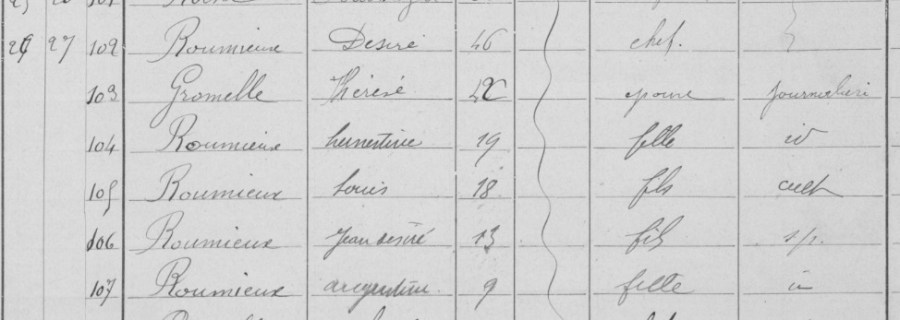 29 27 102 Roumieux Desiré 46 chef.
103 Gromelle Thérèse 42 epouse journalière
104 Roumieux 19 fille id
105 Roumieux Louis 18 fils cult
106 Roumieux Jean désiré 13 fils s/p.
107 Roumieux argentine 9 fille